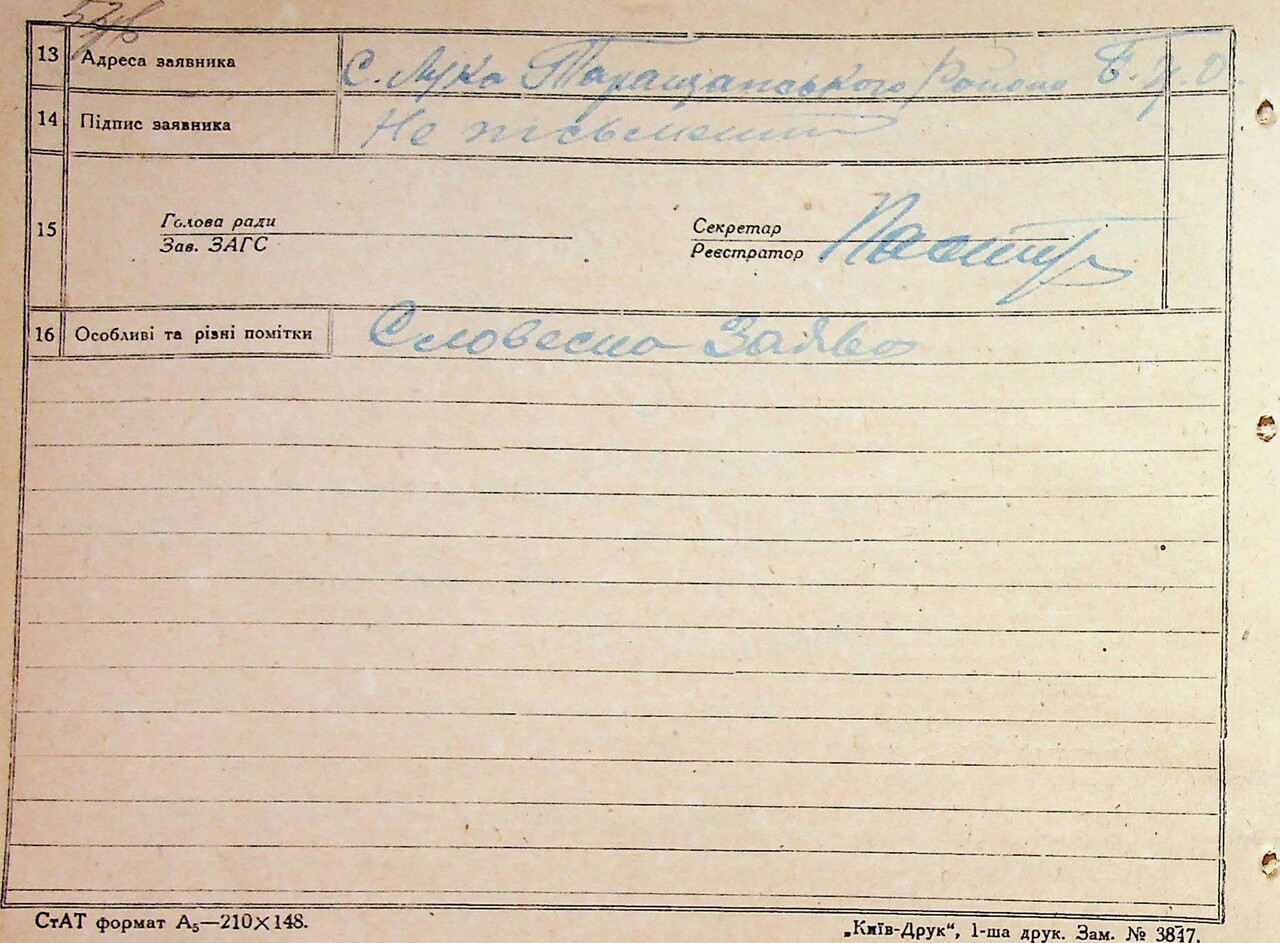 13 Адреса заявника С. Лука Таращанського Району Б.Ц.О.
14 Підпис заявника Не письменний
15 Голова ради Секретар
Зав. ЗАГС Реєстратор
16 Особливі та різні помітки Словесна Заява
СтАТ формат А₅—210×148. „Київ-Друк“, 1-ша друк. Зам. № 3847.